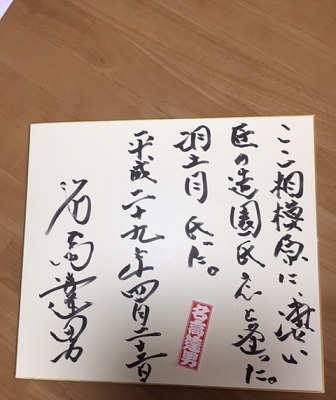 ここ相模原に、凄い
匠の造園氏さんと逢った。
氏だ。
平成二十九年四月二十二日
名高達男
名高達男